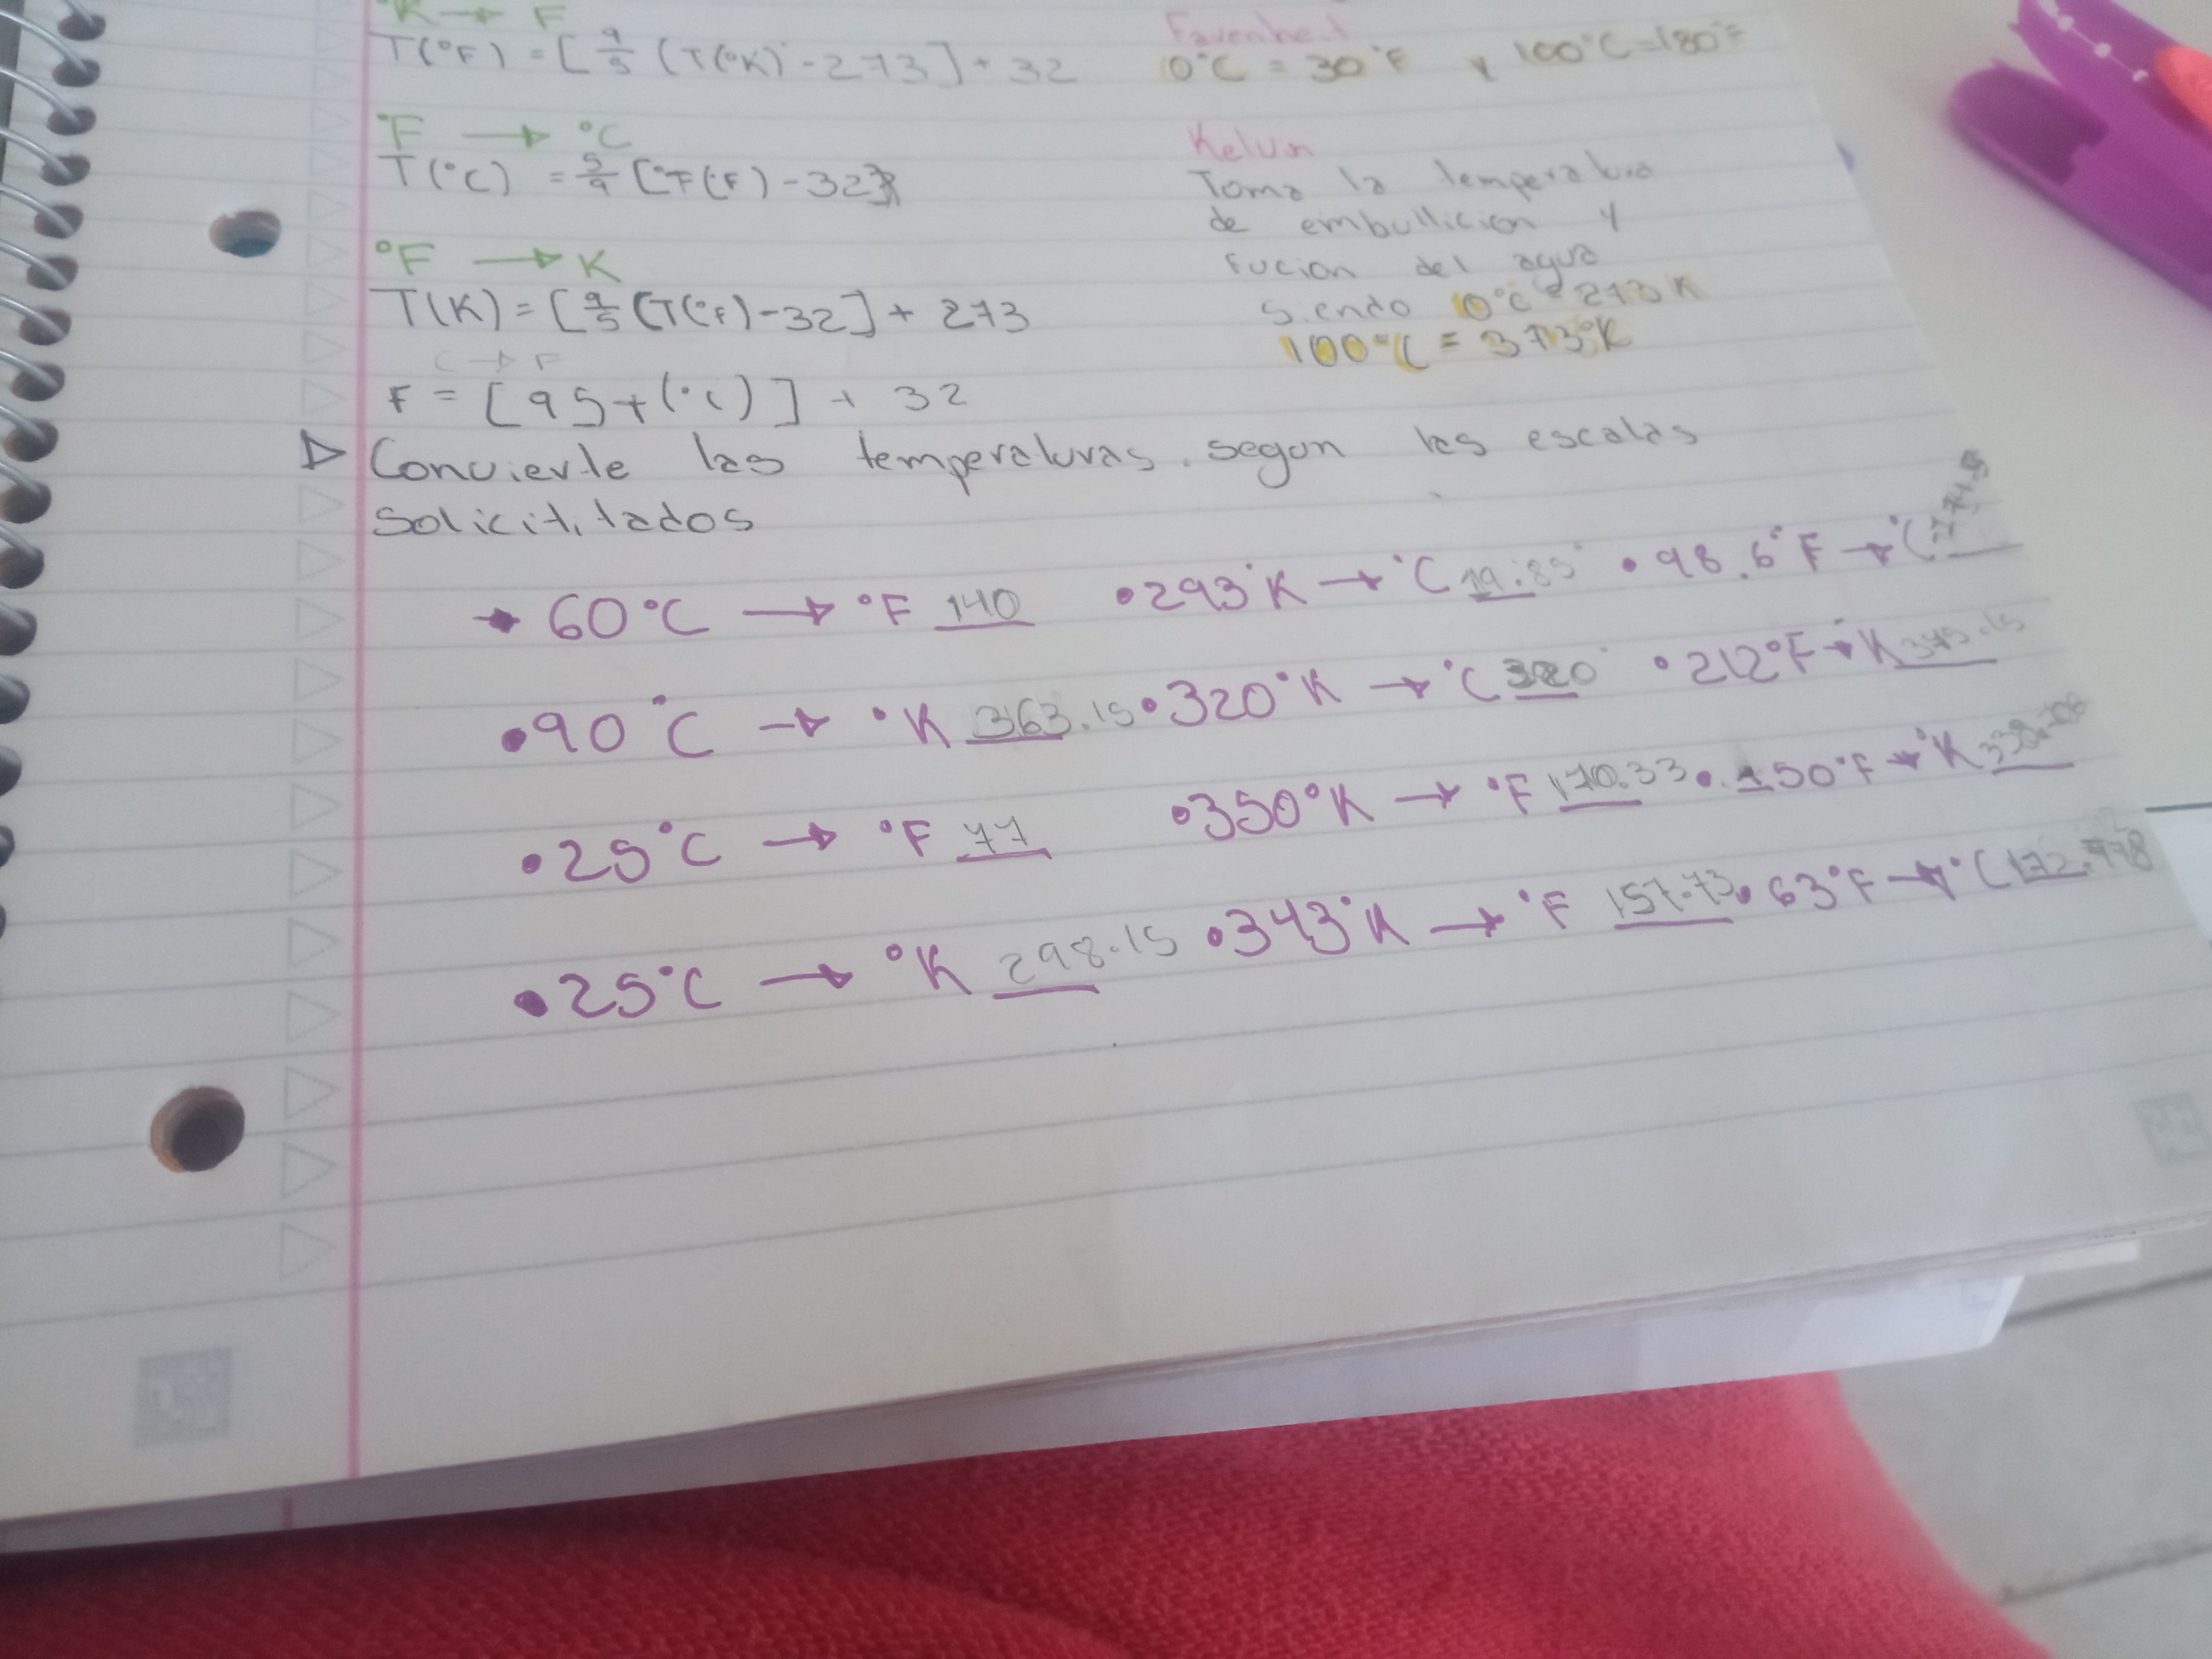 °K → F
T(°F) = [ 9/5 (T(°K) - 273] + 32
°F → °C
T(°C) = 5/9 [°T(°F) - 32]
°F → K
T(K) = [ 9/5 (T(°F) - 32] + 273
C → F
F = [ 95 + (°C) ] + 32
Farenheit
0°C = 30°F y 100°C = 180°F
Kelvin
Toma la temperatura
de embullicion y
fucion del agua
siendo 0°C = 273 K
100°C = 373°K
▷ Convierte las temperaturas segun las escalas
Solicititados
→ 60°C → °F 140 • 293°K → °C 19.85 • 98.6°F → °C
• 90°C → °K 363.15 • 320°K → °C 320 • 212°F → K
• 25°C → °F 77 • 350°K → °F 170.33 • 150°F → °K
• 25°C → °K 298.15 • 343°K → °F 157.73 • 63°F → °C